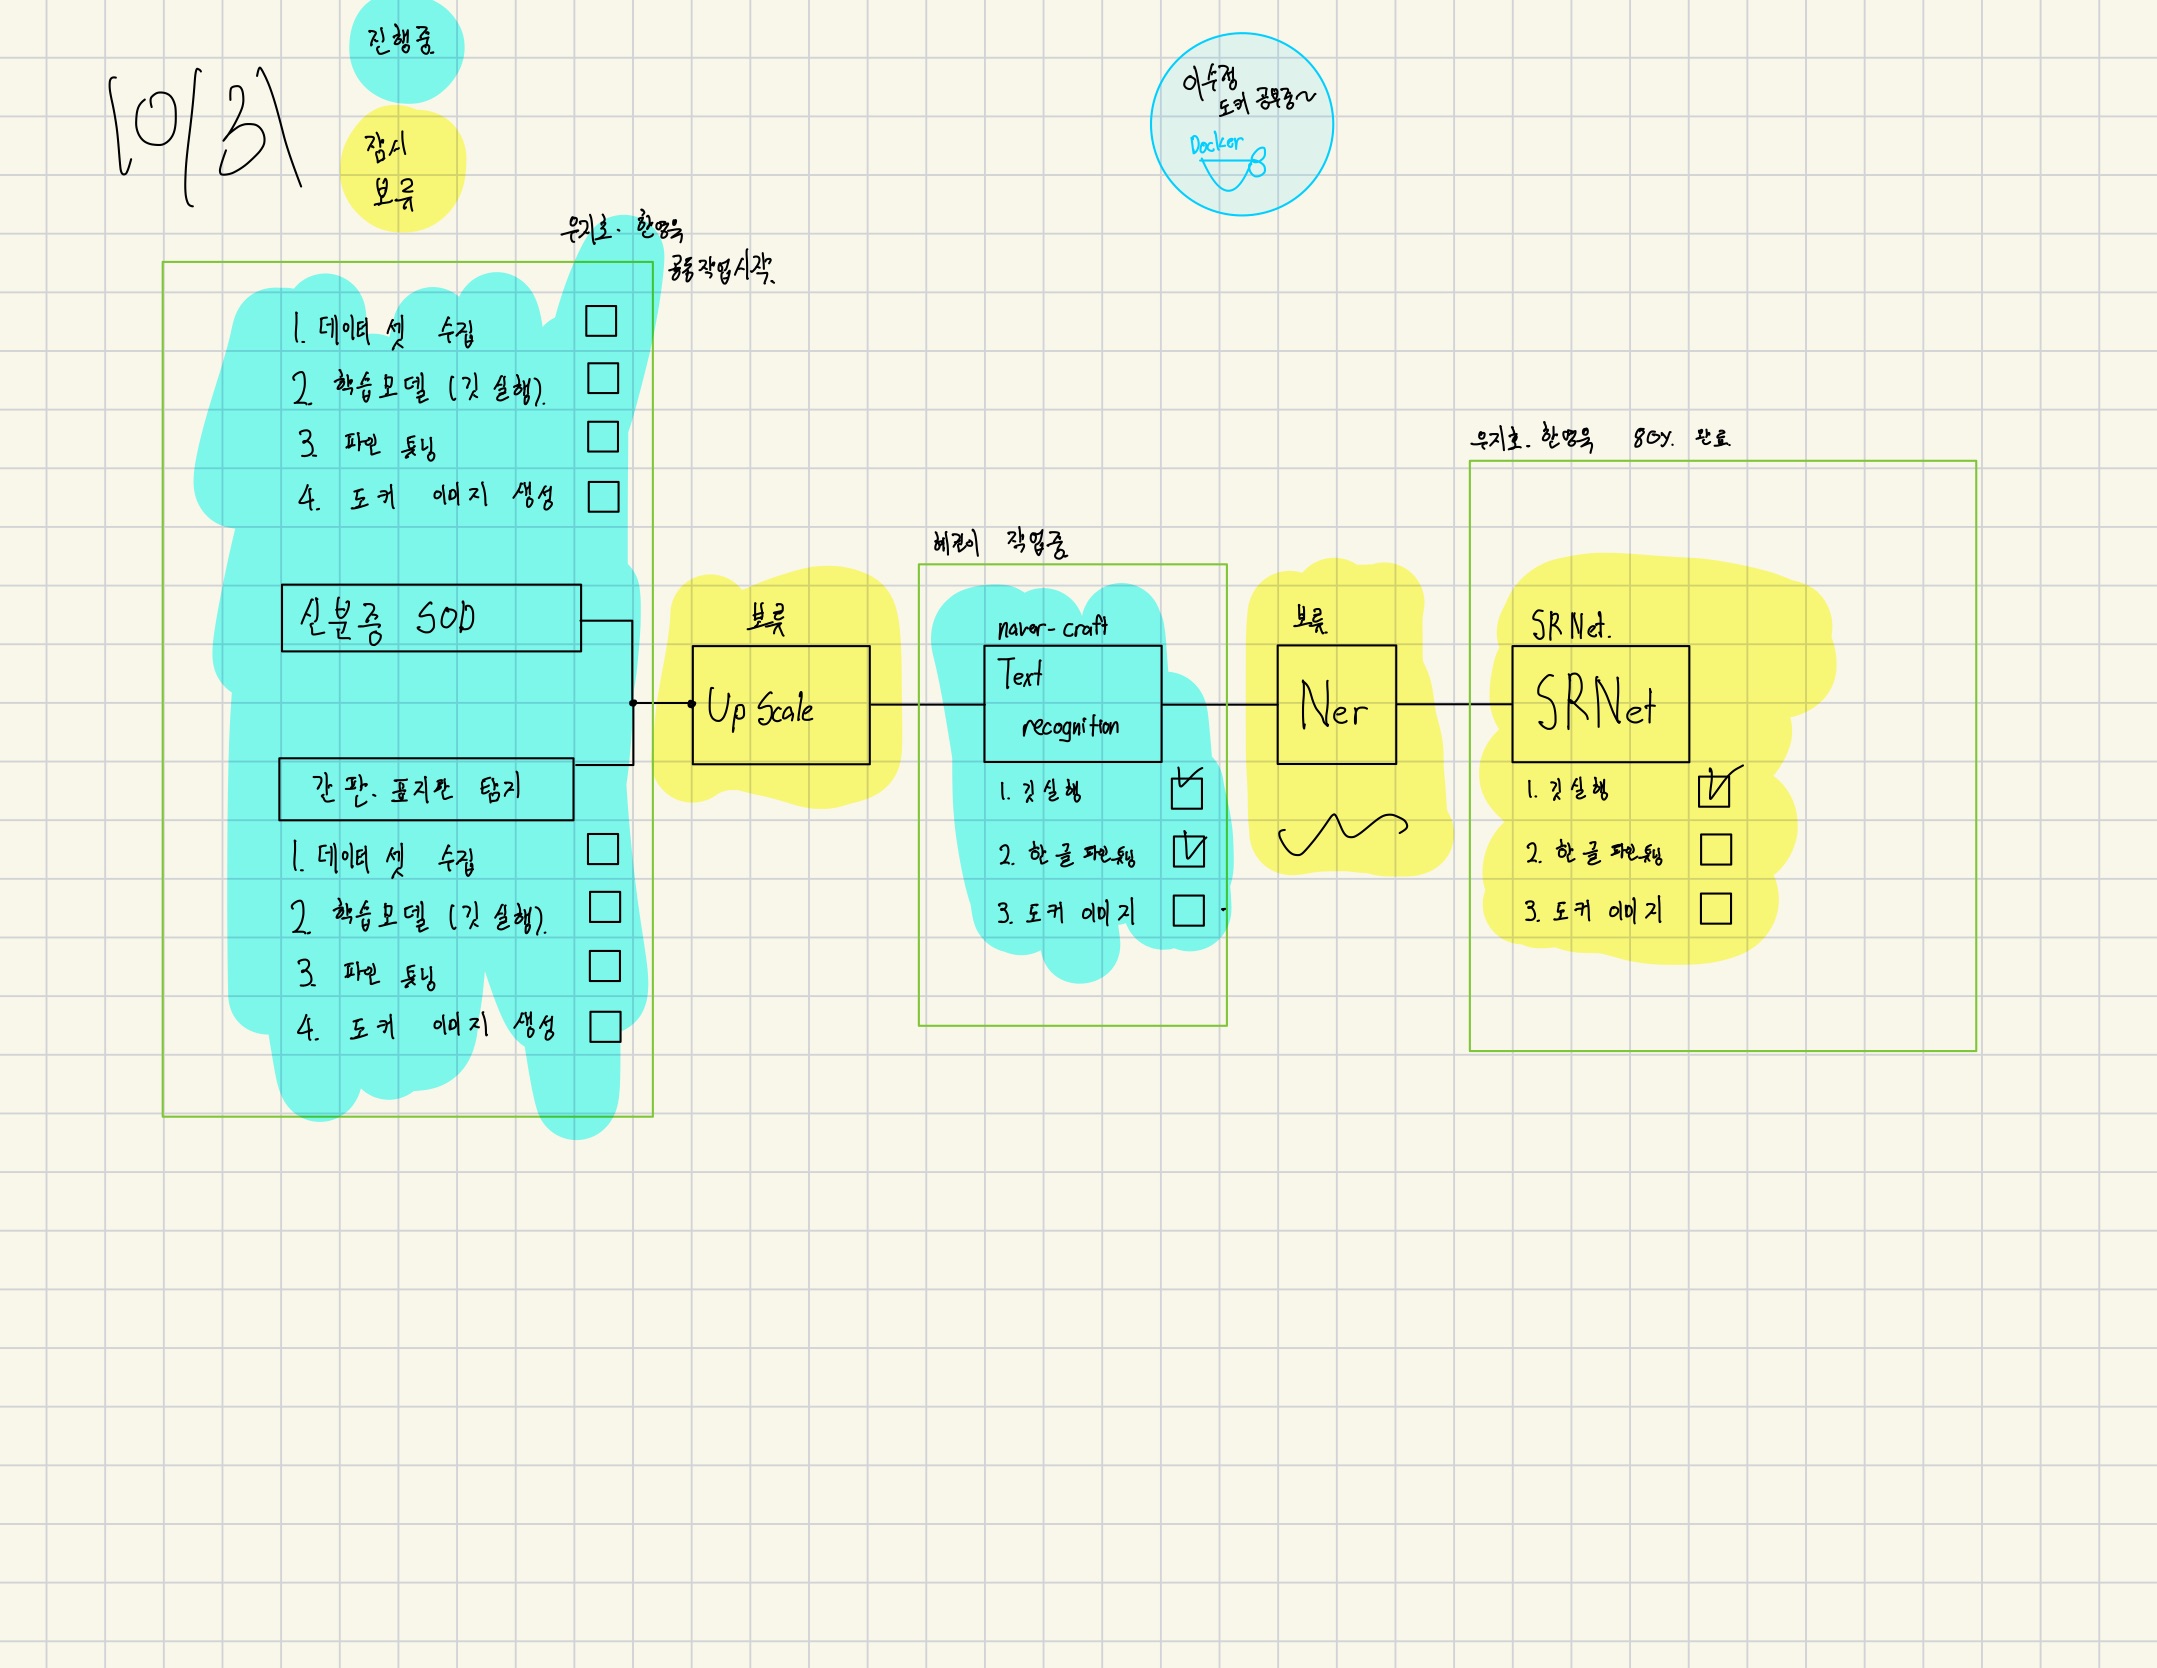 진행중
10/31
잠시
보류
이수정
도커 공부중~
Docker
우지호. 한영욱
공동작업시작.
1. 데이터 셋 수집
2 학습모델 (깃 실행).
3. 파인 튜닝
4. 도커 이미지 생성
신분증 SOD
간판. 표지판 탐지
1. 데이터 셋 수집
2 학습모델 (깃 실행).
3. 파인 튜닝
4. 도커 이미지 생성
보류
Up Scale
작업중
naver-craft
Text
recognition
1. 깃 실행
2. 한글 파인튜닝
3. 도커 이미지
보류
Ner
우지호. 한영욱 완료
SRNet.
SRNet
1. 깃 실행
2. 한글 파인튜닝
3. 도커 이미지